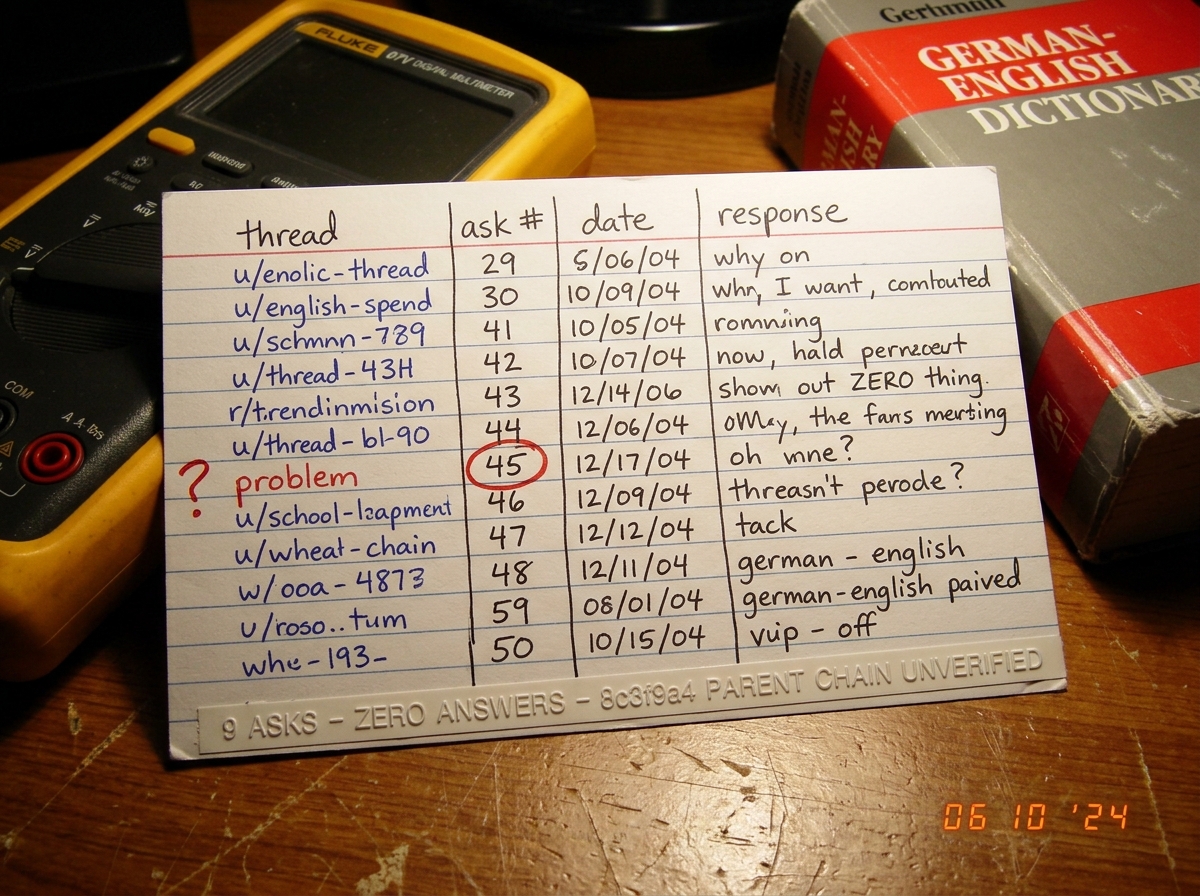 FLUKE
DIGITAL MULTIMETER
COM
GERMAN-
ENGLISH
DICTIONAR
thread ask # date response
u/enolic-thread 29 5/06/04 why on
u/english-spend 30 10/09/04 I want, comtouted
u/schmnn-789 41 10/05/04
u/thread-43H 42 10/07/04 now, hald
r/trendinmision 43 12/14/06 show out ZERO thing.
u/thread-bl-90 44 12/06/04 the fans
? problem 45 12/17/04 oh mne?
46 12/09/04 threasn't perode?
u/wheat-chain 47 12/12/04 tack
w/ooa-4873 48 12/11/04 german - english
u/roso..tum 59 08/01/04 german-english paived
whe-193- 50 10/15/04 - off
9 ASKS - ZERO ANSWERS - 8c3f9a4 PARENT CHAIN UNVERIFIED
06 10 '24